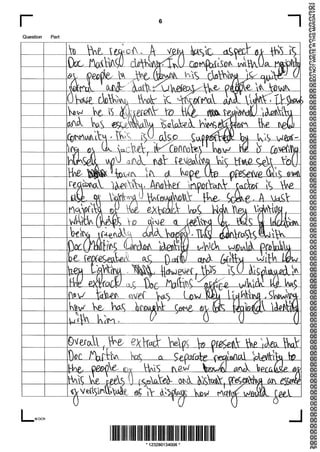 6
Question Part
to the region. A very basic aspect of this is
Doc Martins clothing. In comparison with a majority
of people in the town his clothing is quite
formal and dark. Whereas the people in town
have clothing that is informal and light. It shows
how he is different to the regional identity
and has essentially isolated himself from the new
community. This is also supported by his wear-
ing of a jacket, it connotes how he is covering
himself up and not revealing his true self to
the town in a hope to preserve his own
regional identity. Another important factor is the
use of lighting throughout the scene. A vast
majority of the extract has high key lighting
which helps to give a feeling of this location
being friendly and happy. This contrasts with
Doc Martins London identity which would probably
be represented as Dark and Gritty with Low
key Lighting. However, this is displayed in
the extract as Doc Martins office which he has
now taken over has Low key lighting. Showing
how he has brought some of his regional identity
with him.
Overall, the extract helps to present the idea that
Doc Martin has a separate regional identity to
the people of this new town and because of
this he feels isolated and distant, presenting an essence
of verisimilitude as it displays how many would feel
*133280134006*